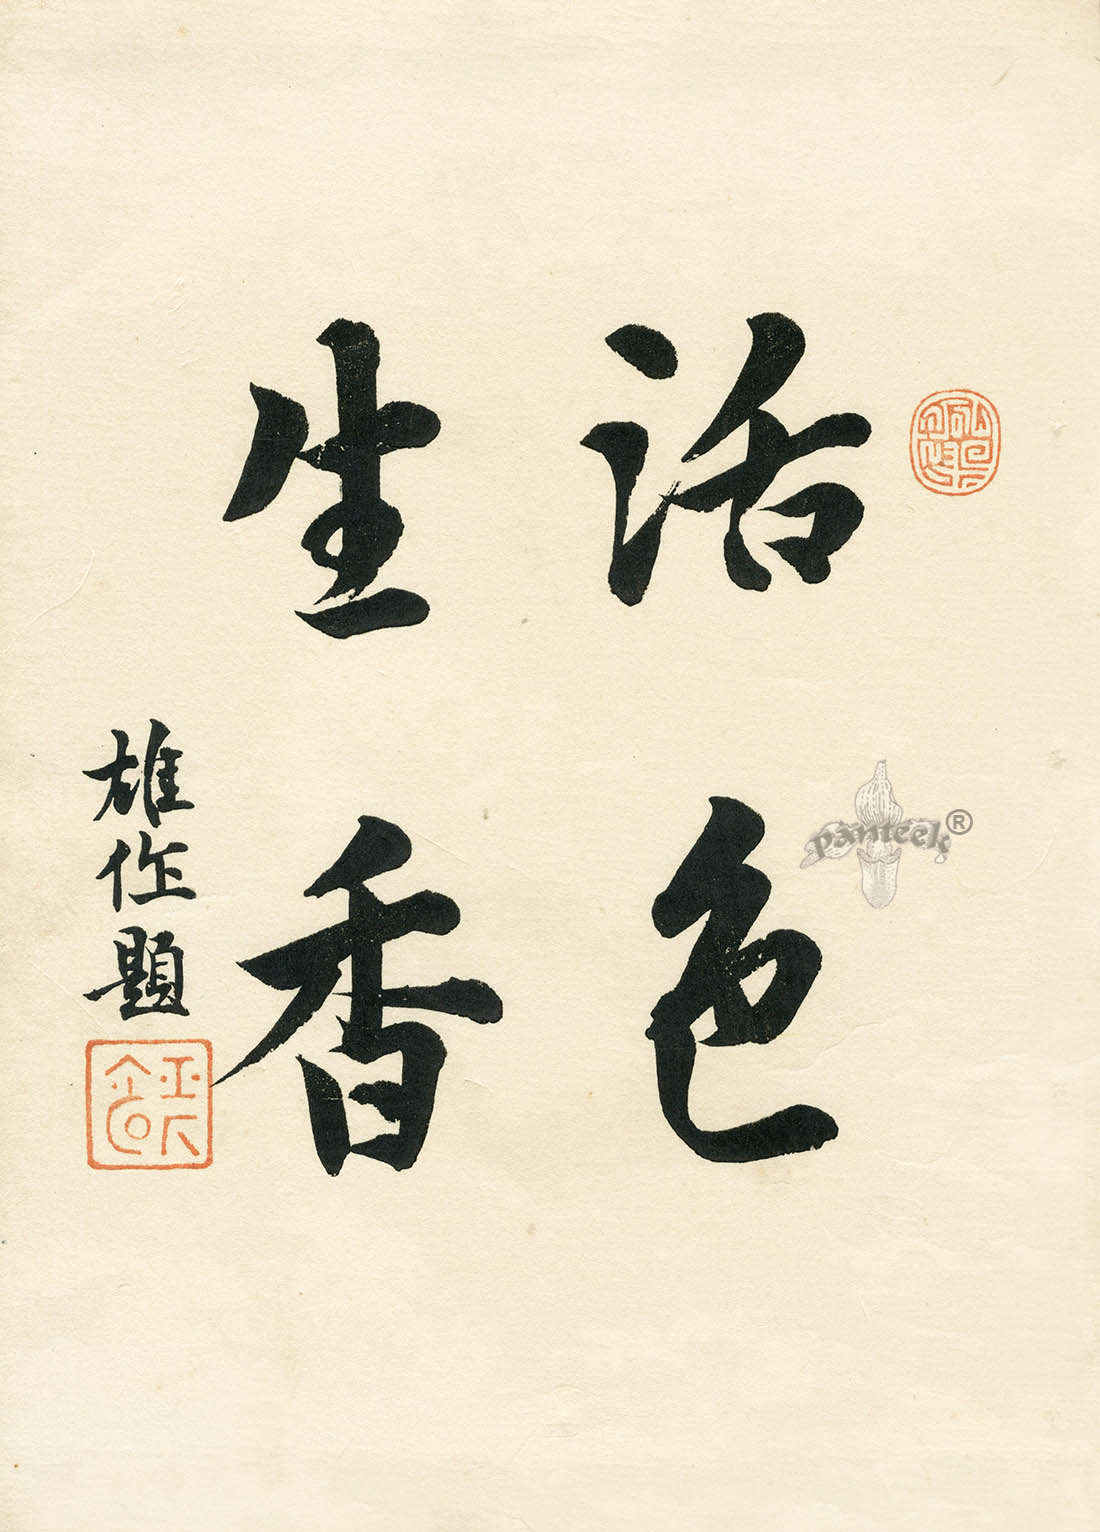 活色
生香
雄作題
panteek®